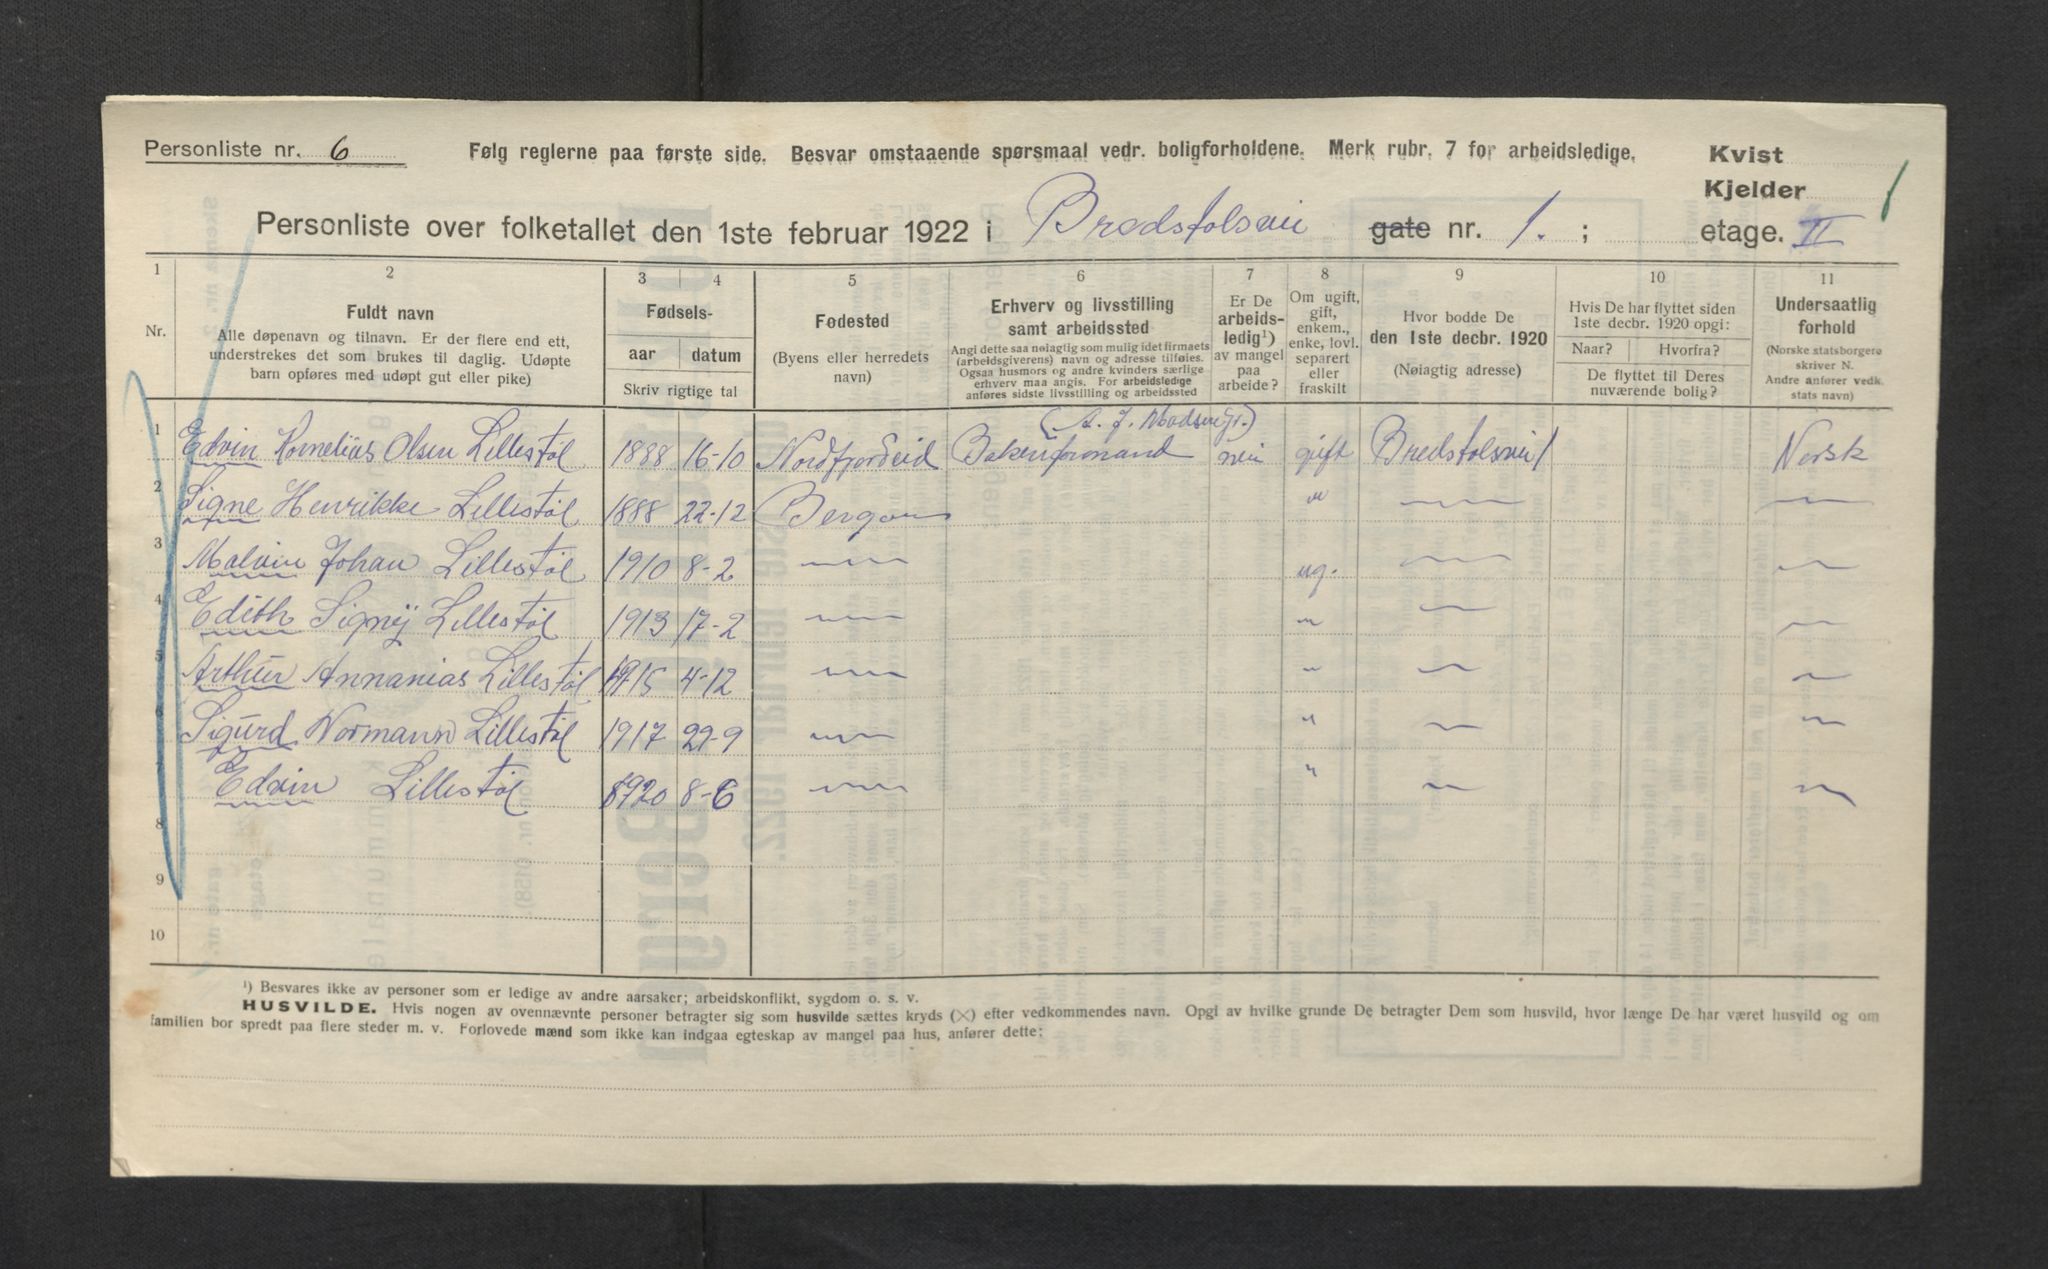 Personliste nr. 6 Følg reglerne paa første side. Besvar omstaaende spørsmaal vedr. boligforholdene. Merk rubr. 7 for arbeidsledige. Kvist
Kjelder
Personliste over folketallet den 1ste februar 1922 i Bredstolsvei gate nr. 1. ; etage. II
1 2 3 4 5 6 7 8 9 10 11
Nr.
Fuldt navn
Alle døpenavn og tilnavn. Er der flere end ett,
understrekes det som brukes til daglig. Udøpte
barn opføres med udøpt gut eller pike)
Fødsels-
aar datum
Skriv rigtige tal
Fødested
(Byens eller herredets
navn)
Erhverv og livsstilling
samt arbeidssted
Angi dette saa nøiaglig som mulig idet firmaets
(arbeidsgiverens) navn og adresse tilføies.
Ogsaa husmors og andre kvinders særlige
erhverv maa angis. For arbeidsledige
anføres sidste livsstilling og arbeidssted
Er De
arbeids-
ledig¹)
av mangel
paa
arbeide?
Om ugift,
gift,
enkem.,
enke, lovl.
separert
eller
fraskilt
Hvor bodde De
den 1ste decbr. 1920
(Nøiagtig adresse)
Hvis De har flyttet siden
1ste decbr. 1920 opgi:
Naar? Hvorfra?
De flyttet til Deres
nuværende bolig?
Undersaatlig
forhold
(Norske statsborgere
skriver N.
Andre anfører vedk.
stats navn)
(A. J. Madsen Jr.)
1 Edvin Kornelius Olsen Lillestøl 1888 16-10 Nordfjordeid Bakeriformand nei gift Bredstolsvei 1 Norsk
2 Signe Henrikke Lillestøl 1888 22-12 Bergen "
3 Malvin Johan Lillestøl 1910 8-2 ug.
4 Edith Signy Lillestøl 1913 17-2 "
5 Arthur Annanias Lillestøl 1915 4-12 "
6 Sigurd Normann Lillestøl 1917 29-9 "
7 Edvin Lillestøl 1920 8-6 "
8
9
10
¹) Besvares ikke av personer som er ledige av andre aarsaker; arbeidskonflikt, sygdom o. s. v.
HUSVILDE. Hvis nogen av ovennævnte personer betragter sig som husvilde sættes kryds (×) efter vedkommendes navn. Opgi av hvilke grunde De betragter Dem som husvild, hvor længe De har været husvild og om
familien bor spredt paa flere steder m. v. Forlovede mænd som ikke kan indgaa egteskap av mangel paa hus, anfører dette: